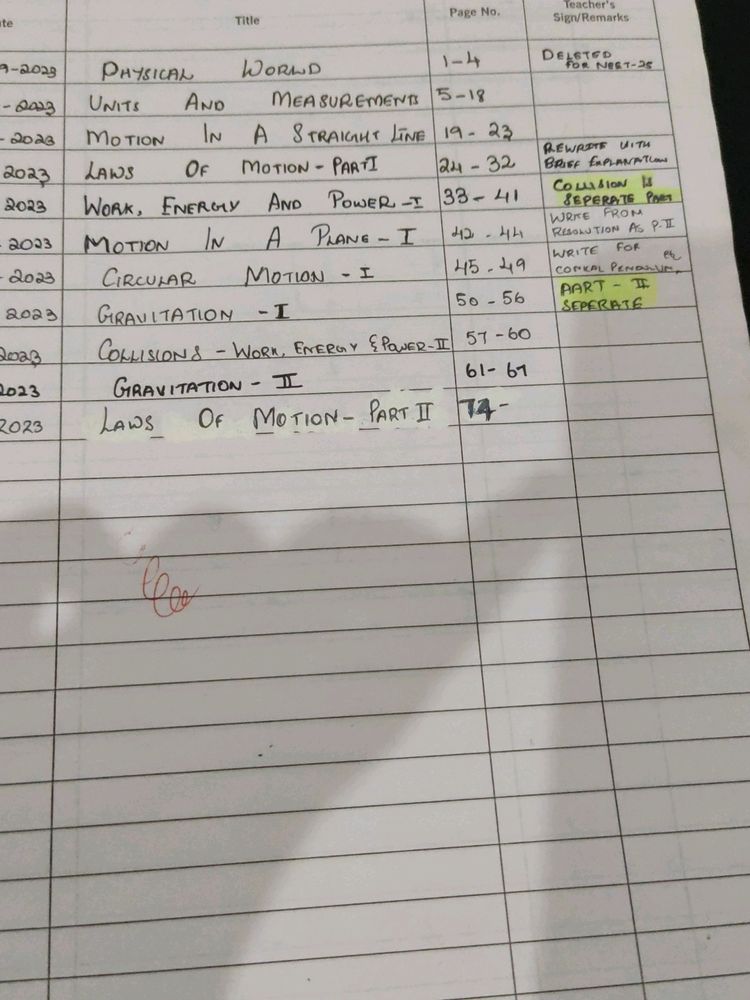 te Title Page No. Teacher's
Sign/Remarks
9-2023 PHYSICAL WORLD 1-4 DELETED
FOR NEET-25
-2023 UNITS AND MEASUREMENTS 5-18
-2023 MOTION IN A STRAIGHT LINE 19-23
2023 LAWS OF MOTION-PART I 24-32 REWRITE WITH
BRIEF EXPLANATION
2023 WORK, ENERGY AND POWER-I 33-41 COLLISION IS
SEPERATE PART
-2023 MOTION IN A PLANE-I 42-44 WRITE FROM
RESOLUTION AS P-II
-2023 CIRCULAR MOTION-I 45-49 WRITE FOR
CONICAL PENDULUM,
2023 GRAVITATION-I 50-56 PART-II
SEPERATE
2023 COLLISIONS-WORK, ENERGY & POWER-II 57-60
2023 GRAVITATION-II 61-67
2023 LAWS OF MOTION-PART II 74-